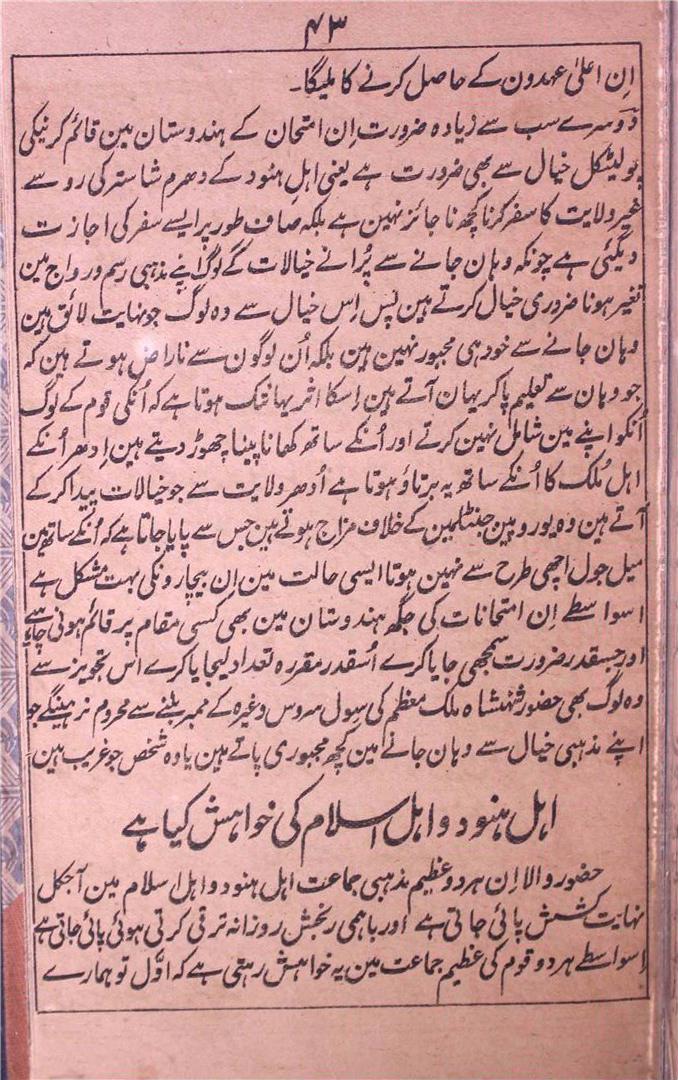 ۴۳
اِن اعلیٰ عہدون کے حاصل کرنے کا ملیگا۔
دوسرے سب سے زیادہ ضرورت اِن امتحان کے ہندوستان مین قائم کرنیکی
پولیٹکل خیال سے بھی ضرورت ہے یعنی اہلِ ہنود کے دھرم شاستر کی رو سے
غیر ولایت کا سفر کرنا کچھ ناجائز نہین ہے بلکہ صاف طور پر ایسے سفر کی اجازت
دیگئی ہے چونکہ وہان جانے سے پُرانے خیالات کے لوگ اپنے مذہبی رسم و رواج مین
تغیر ہونا ضروری خیال کرتے ہین پس اِس خیال سے وہ لوگ جو نہایت لائق ہین
وہان جانے سے خود ہی مجبور نہین ہین بلکہ اُن لوگون سے ناراض ہوتے ہین کہ
جو وہان سے تعلیم پاکر یہان آتے ہین اِسکا اثر یہانتک ہوتا ہے کہ اُنکی قوم کے لوگ
اُنکو اپنے مین شامل نہین کرتے اور اُنکے ساتھ کھانا پینا چھوڑ دیتے ہین اِدھر اُنکے
اہل مُلک کا اُنکے ساتھ یہ برتاؤ ہوتا ہے اُدھر ولایت سے جو خیالات پیدا کر کے
آتے ہین وہ یوروپین جنٹلمین کے خلاف مزاج ہوتے ہین جس سے پایا جاتا ہے کہ اُنکے ساتھ مین
میل جول اچھی طرح سے نہین ہوتا ایسی حالت مین اِن بیچارونکی بہت مشکل ہے
اسواسطے اِن امتحانات کی جگہ ہندوستان مین بھی کسی مقام پر قائم ہونی چاہیے
اور جسقدر ضرورت سمجھی جایا کرے اُسقدر مقررہ تعداد لیجایا کرے اس تجویز سے
وہ لوگ بھی حضور شہنشاہ ملک معظم کی سِول سروس وغیرہ کے ممبر بننے سے محروم نرہینگے جو
اپنے مذہبی خیال سے وہان جانے مین کچھ مجبوری پاتے ہین یا وہ شخص جو غریب ہین
اہل ہنود و اہل اسلام کی خواہش کیا ہے
حضور والا اِن ہر دو عظیم مذہبی جماعت اہل ہنود و اہل اسلام مین آجکل
نہایت کشمش پائی جاتی ہے اور باہمی رنجش روزانہ ترقی کرتی ہوئی پائی جاتی ہے
اِسواسطے ہر دو قوم کی عظیم جماعت مین یہ خواہش رہتی ہے کہ اوّل تو ہمارے